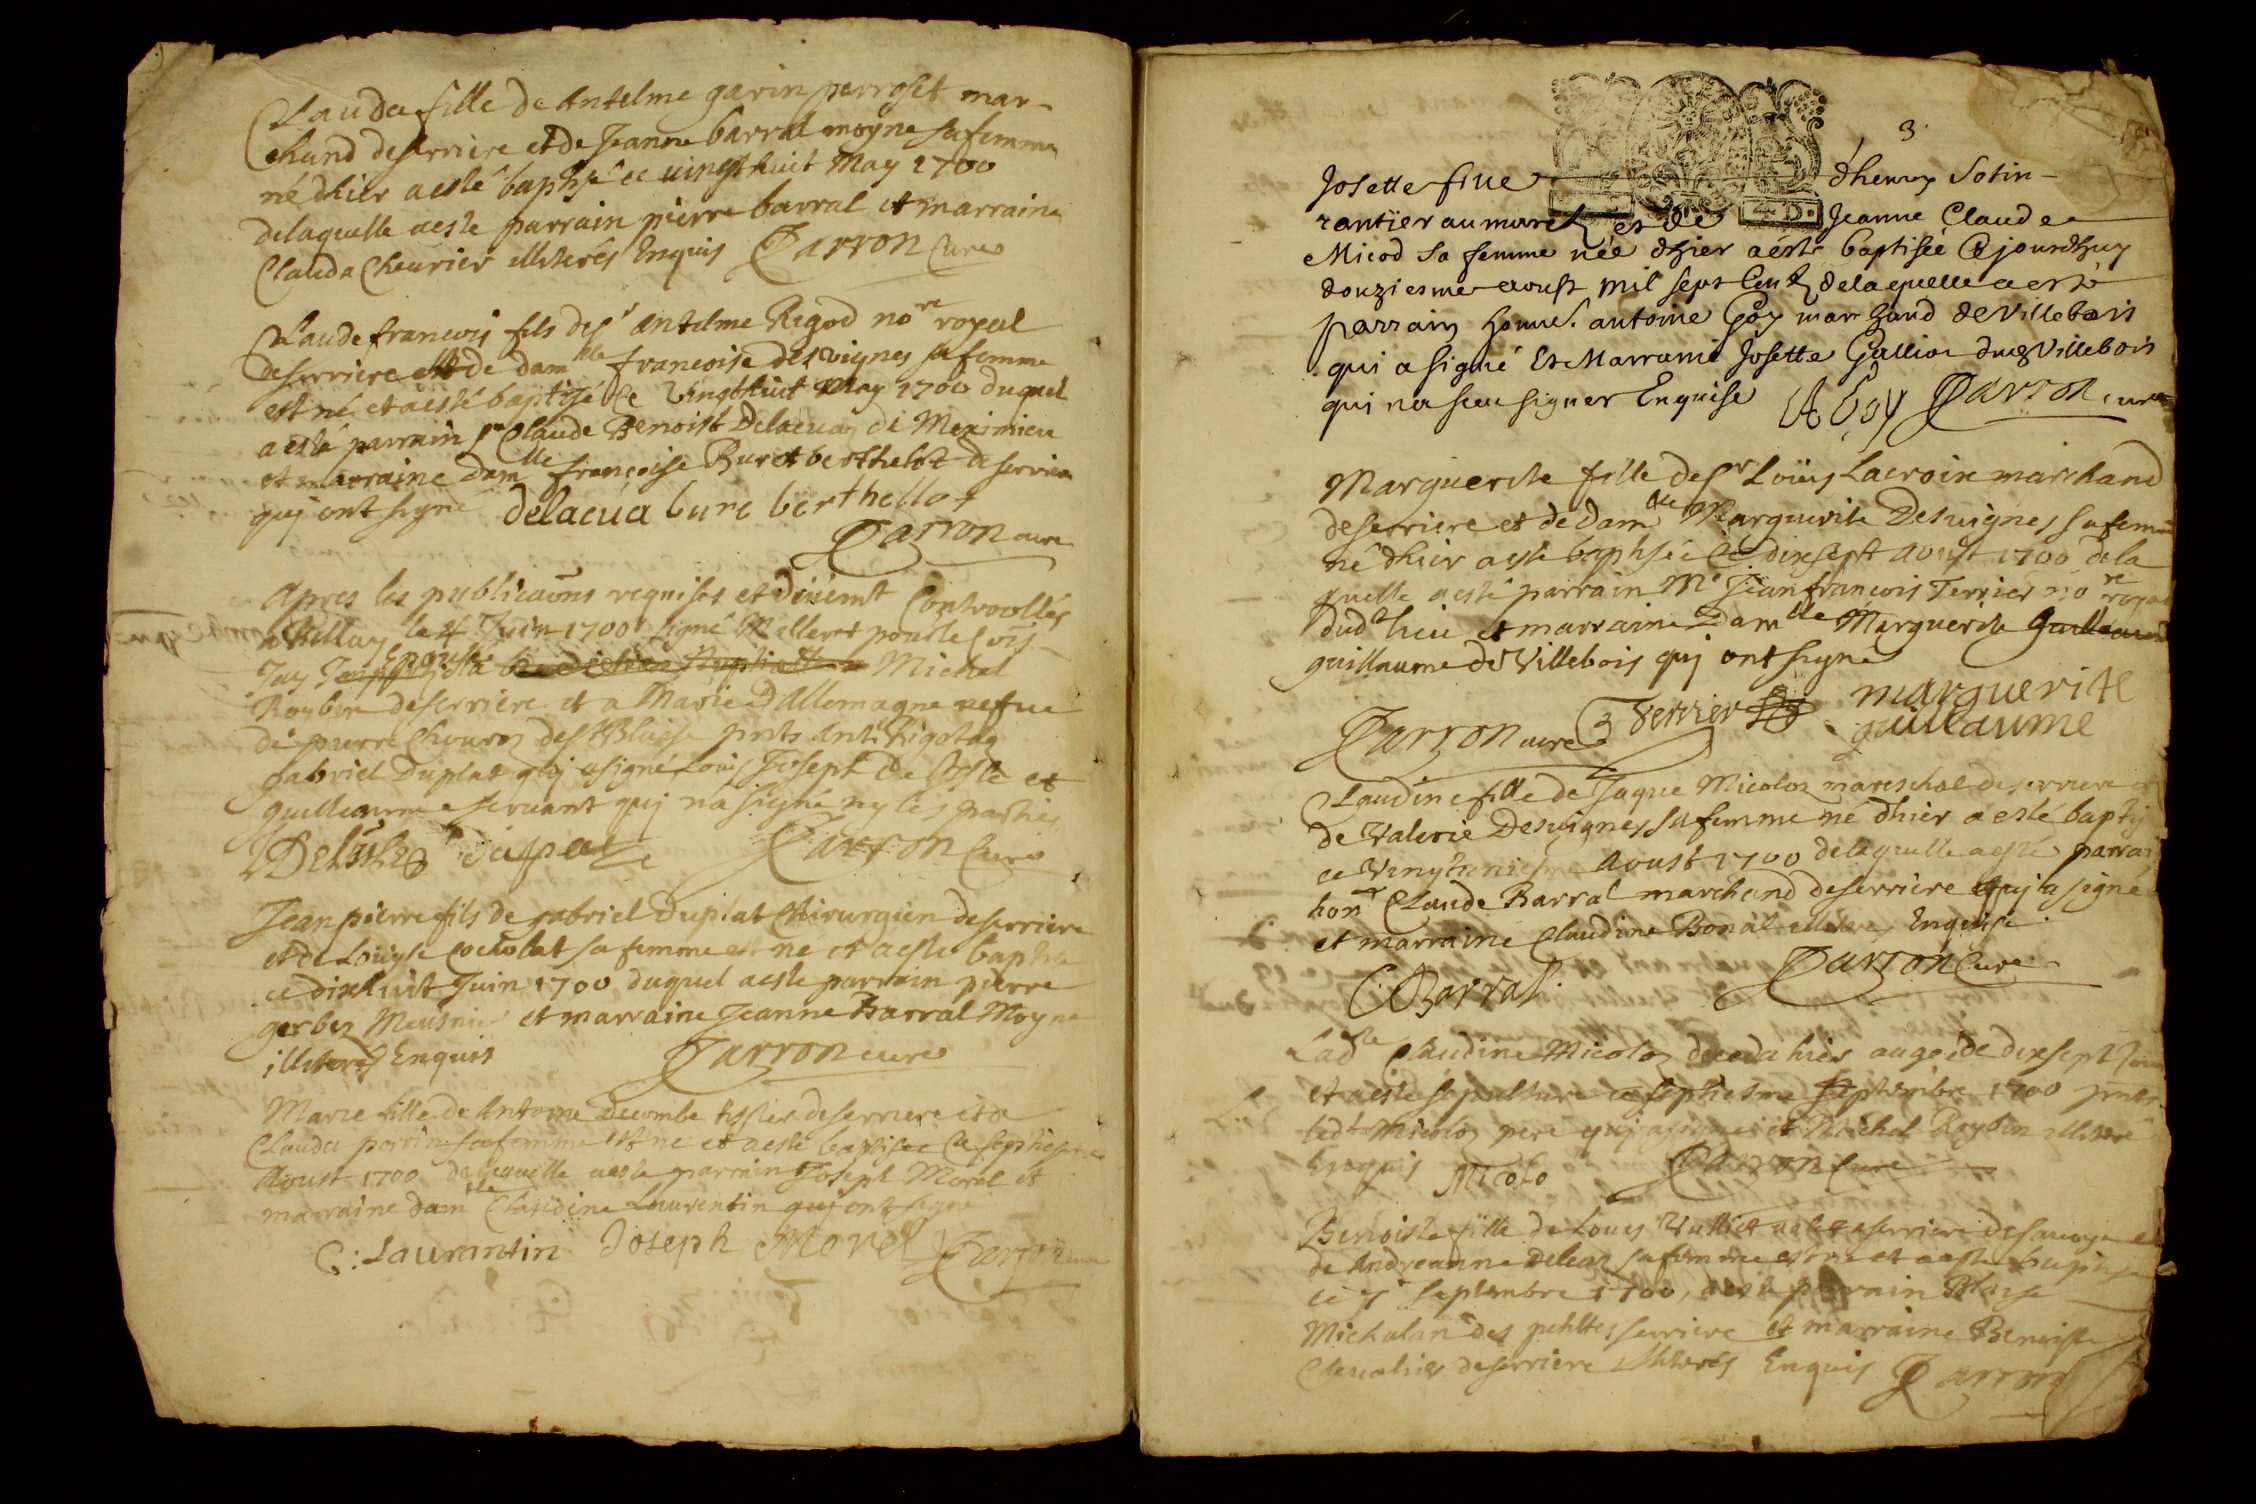 Clauda fille de Antelme garin perroset mar-
chand deserriere et de Jeanne barral moyne sa femme
né dhier a esté baptisé ce vingt huit May 1700
delaquelle a este parrain pierre barral et marraine
Clauda Cheurier illiterés Enquis Parron Cure
Claude francois fils de sr Antelme Rigod nore royal
deserriere et de damlle francoise desvignes sa femme
est né et a esté baptizé ce vingt huit May 1700 duquel
a esté parrain sr Claude Benoist Delacua de Meximieu
et marraine damlle françoise Buret berthelot de serriere
quj ont signé delacua bure berthellot
Parron cure
Apres les publicaons requises et düemt Controollés
a Bellay le 4 Juin 1700 signé Melleret pour le
Jay Epousé Michel
Roybin deserriere et a Marie dAllemagne vefue
de pierre de St Blaise pnts
gabriel Duplat quj a signé Louis Joseph De et
guilleaume seruant quj na signé ny les parties
duplat Parron Cure
Jean pierre fils de gabriel Duplat Chirurgien deserriere
et de Louyse cocholat sa femme est né et a esté baptisé
ce dixhuit Juin 1700 duquel a este parrain pierre
gerbez Meusnier et marraine Jeanne Barral Moyne
illiterés Enquis Parron cure
Marie fille de Antoine decombe tissier deserriere et de
Clauda perrin sa femme est né et a esté baptisee ce septiesme
Aoust 1700 de laquelle a este parrain Joseph Morel et
marraine damlle Claudine Laurentin quj ont signe
C: Laurantin Joseph Morel Parron cure
3
Josette fille dhenry Sotin-
rantier au marez et de Jeanne Claude
Micod Sa femme née dhier a ésté baptisée Cejourdhuy
douziesme aoust mil sept Cent, delaquelle a esté
parrain honnel. antoine Goy marchand de Villebois
qui a signé Et Marraine Josette Gallion dud Villebois
qui na sceu signer Enquise A Goy Parron, cure
Marguerite fille de sr Loüis Lacroix marchand
deserriere et de damlle Marguerite Desuignes sa femme
né dhier a este baptisée Ce dixsept aoust 1700 dela
quelle a esté parrain Me Jean francois Terrier nore royal
dudt lieu et marraine Damlle Marguerite
guillaume de Villebois quj ont signe
Parron cure Terrier marguerite
guillaume
Claudine fille de Jaque Micoloz mareschal deserriere et
de Valerie Desuignes sa femme né dhier a esté baptisé
ce Vingt aoust 1700 delaquelle a este parrain
honr Claude Barral marchand deserriere quj a signé
et marraine Claudine Bonat illiteree Enquise
C. Barral. Parron Cure
Ladte Claudine Micoloz decedà hier augee de dixsept Jours
et a esté sepulturé ce septiesme Septembre 1700 pnts
ledt Micoloz pere quj a signé et Michel Roybin illiteré
Enquis Micolo Parron Cure
Benoiste fille de Louys Vulliet deserriere de
de Andreanne sa femme est né et a esté baptisé
ce 7e Septembre 1700, a este parrain Blaise
Michalan des petittes serriere et marraine Benoiste
Cheualier deserriere illiterés Enquis Parron